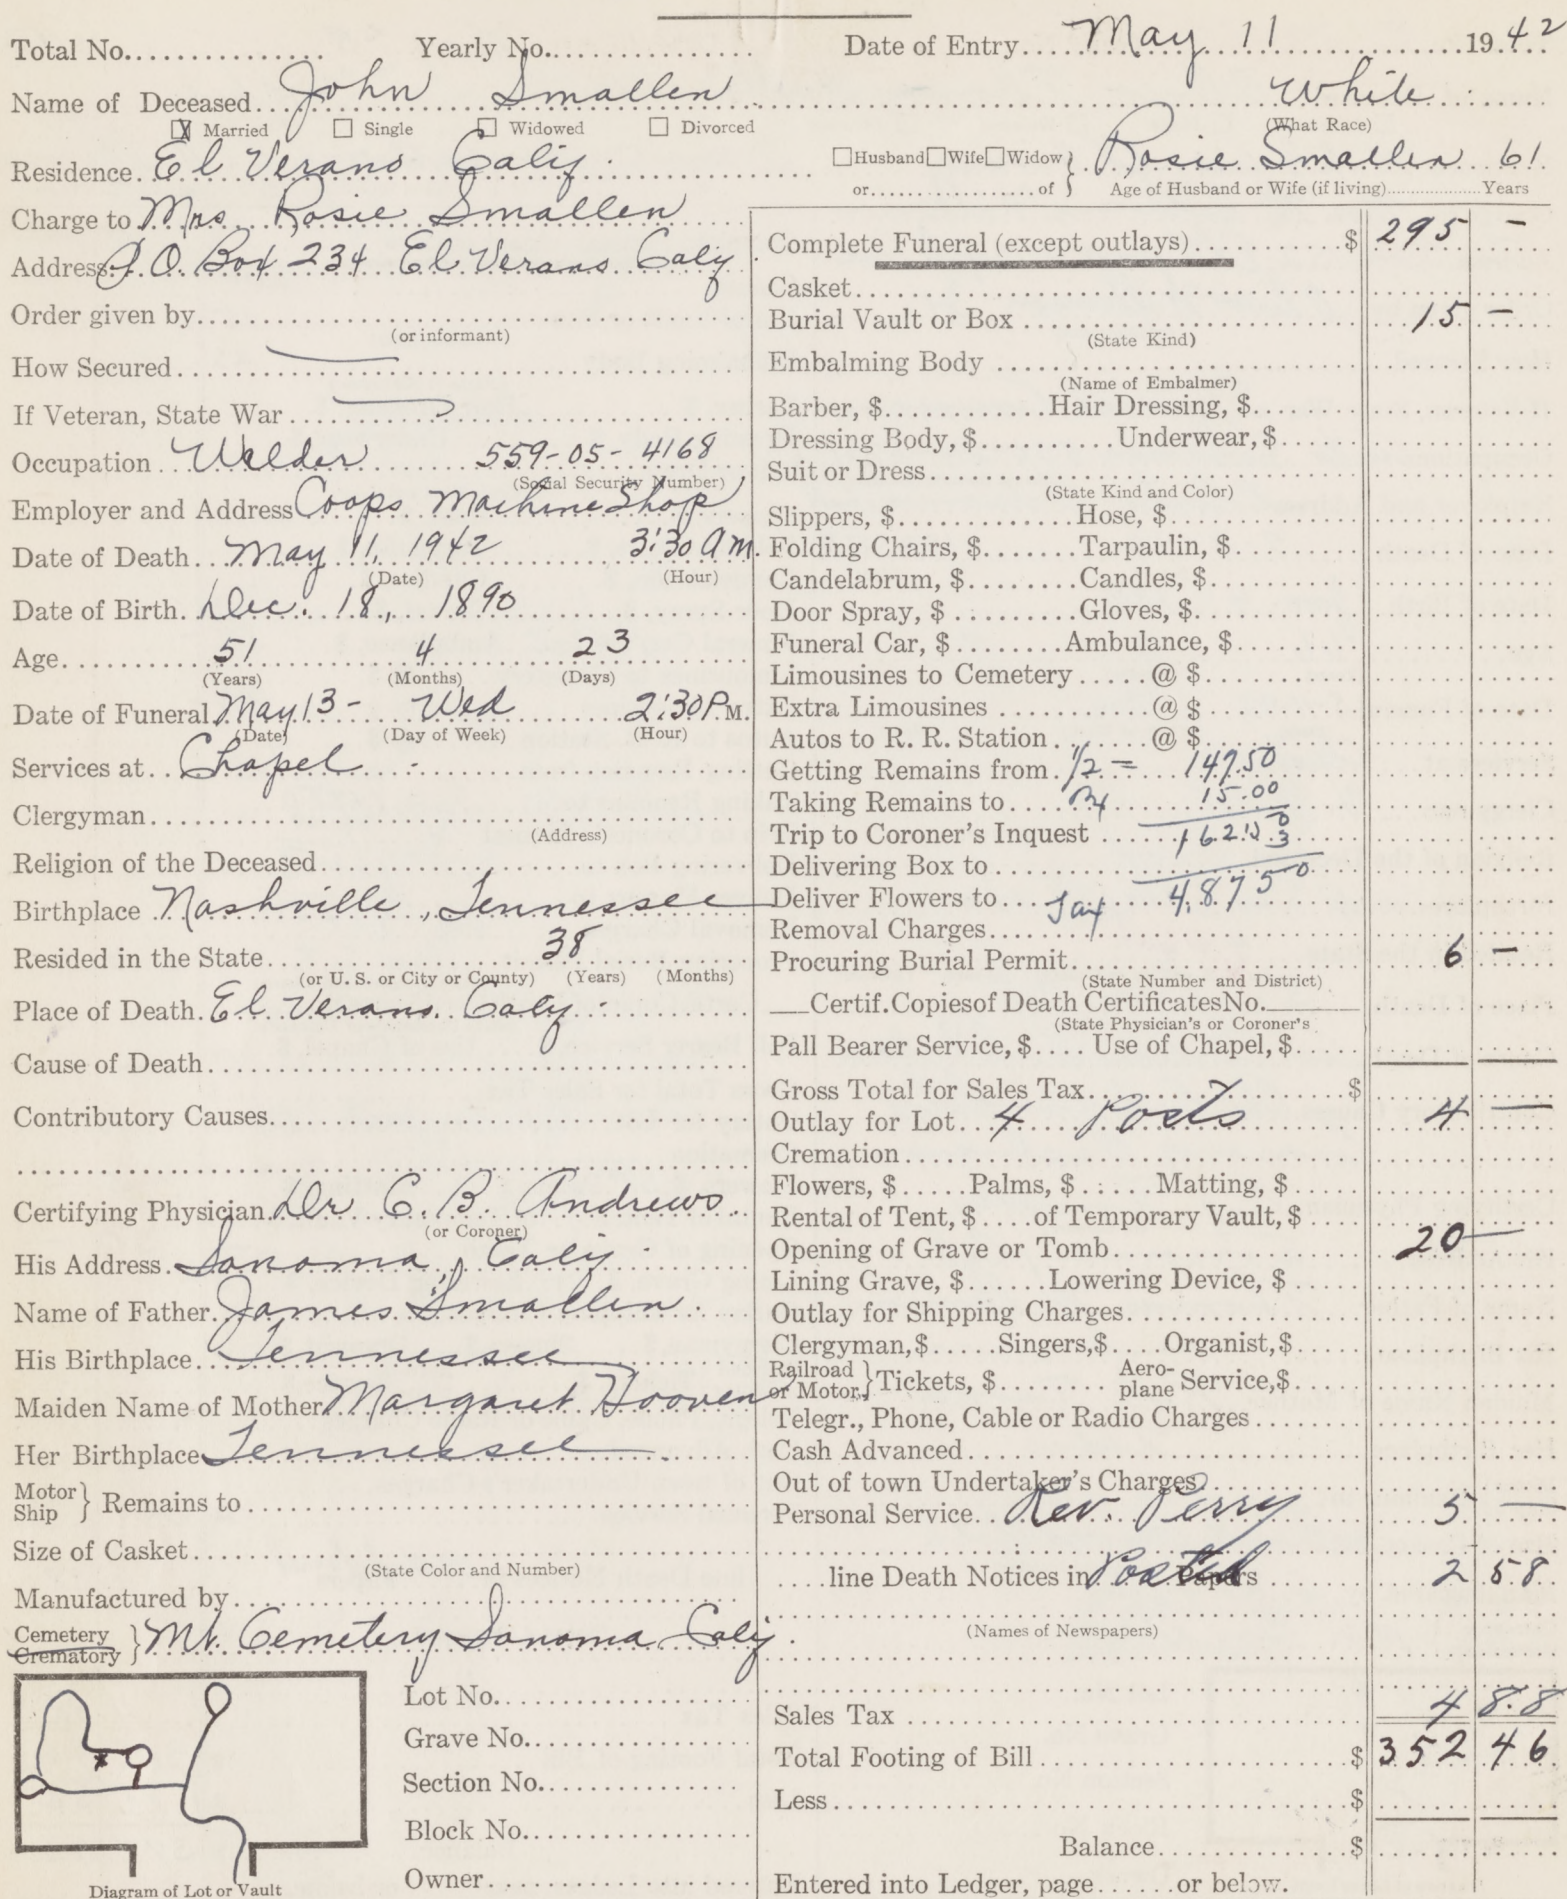 Total No. Yearly No. Date of Entry May 11 1942
Name of Deceased John Smallen White
Married Single Widowed Divorced (What Race)
Residence El Verano Calif. Husband Wife Widow or of Rosie Smallen 61
Age of Husband or Wife (if living) Years
Charge to Mrs. Rosie Smallen
Address P.O. Box 234 El Verano Calif
Order given by
(or informant)
How Secured
If Veteran, State War
Occupation Welder 559-05-4168
(Social Security Number)
Employer and Address Coops Machine Shop
Date of Death May 11, 1942 3:30 A M.
(Date) (Hour)
Date of Birth Dec. 18, 1890
Age 51 4 23
(Years) (Months) (Days)
Date of Funeral May 13- Wed 2:30 P.M.
(Date) (Day of Week) (Hour)
Services at Chapel
Clergyman
(Address)
Religion of the Deceased
Birthplace Nashville, Tennessee
Resided in the State 38
(or U. S. or City or County) (Years) (Months)
Place of Death El Verano. Calif
Cause of Death
Contributory Causes
Certifying Physician Dr C. B. Andrews
(or Coroner)
His Address Sonoma, Calif
Name of Father James Smallen
His Birthplace Tennessee
Maiden Name of Mother Margaret Hooven
Her Birthplace Tennessee
Motor Ship } Remains to
Size of Casket
(State Color and Number)
Manufactured by
Cemetery Crematory } Mt. Cemetery Sonoma Calif
Lot No.
Grave No.
Section No.
Block No.
Owner
Diagram of Lot or Vault
Complete Funeral (except outlays) $ 295 -
Casket
Burial Vault or Box 15 -
(State Kind)
Embalming Body
(Name of Embalmer)
Barber, $ Hair Dressing, $
Dressing Body, $ Underwear, $
Suit or Dress
(State Kind and Color)
Slippers, $ Hose, $
Folding Chairs, $ Tarpaulin, $
Candelabrum, $ Candles, $
Door Spray, $ Gloves, $
Funeral Car, $ Ambulance, $
Limousines to Cemetery @ $
Extra Limousines @ $
Autos to R. R. Station @ $
Getting Remains from 1/2 = 147.50
Taking Remains to 15.00
Trip to Coroner's Inquest 162.50 3
Delivering Box to
Deliver Flowers to Tax 4.8750
Removal Charges
Procuring Burial Permit 6 -
(State Number and District)
Certif. Copies of Death Certificates No.
(State Physician's or Coroner's
Pall Bearer Service, $ Use of Chapel, $
Gross Total for Sales Tax $
Outlay for Lot 4 Posts 4 -
Cremation
Flowers, $ Palms, $ Matting, $
Rental of Tent, $ of Temporary Vault, $
Opening of Grave or Tomb 20 -
Lining Grave, $ Lowering Device, $
Outlay for Shipping Charges
Clergyman, $ Singers, $ Organist, $
Railroad or Motor } Tickets, $ Aero-plane Service, $
Telegr., Phone, Cable or Radio Charges
Cash Advanced
Out of town Undertaker's Charges
Personal Service Rev. Perry 5 -
line Death Notices in Papers 2 58
(Names of Newspapers)
Sales Tax 4 88
Total Footing of Bill $ 352 46
Less $
Balance $
Entered into Ledger, page or below.